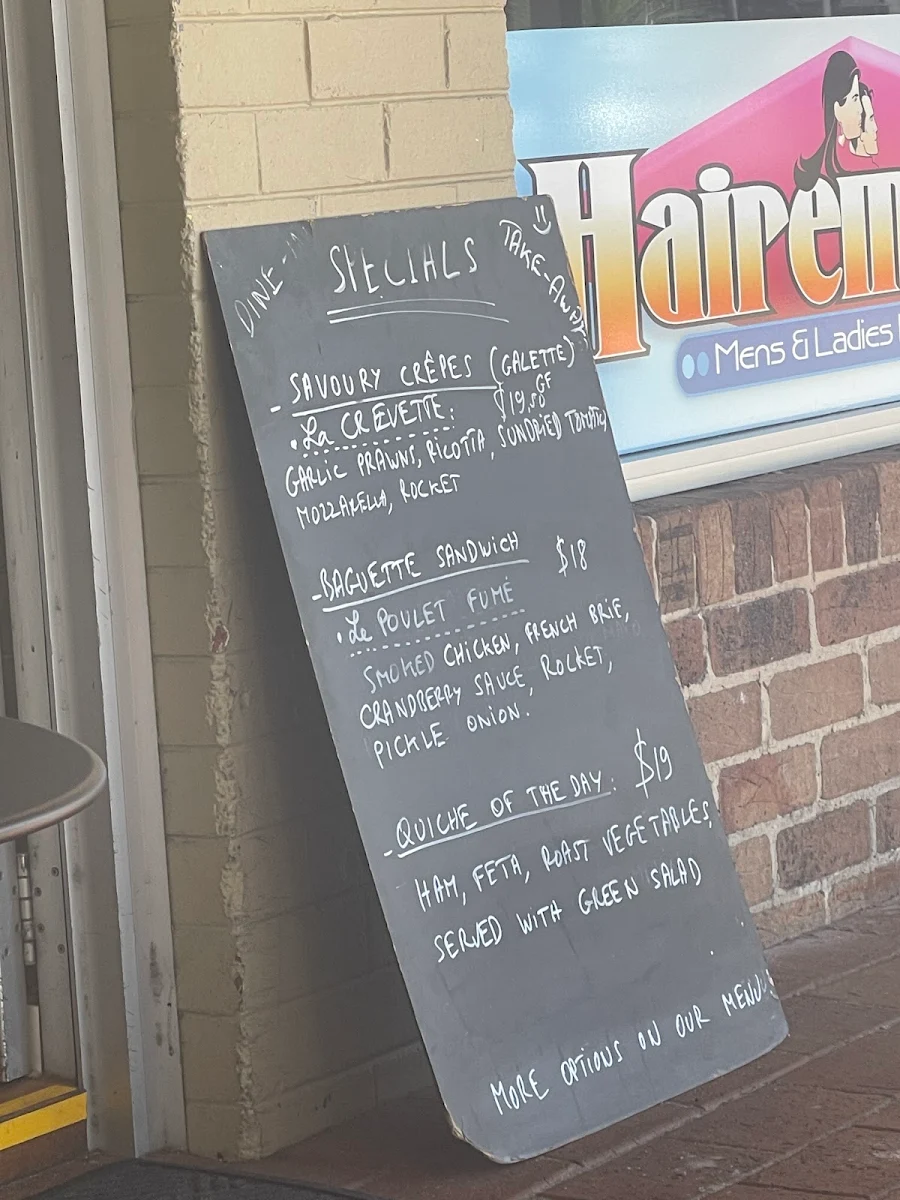 DINE-IN
SPECIALS
TAKE-AWAY
- SAVOURY CRÊPES (GALETTE)
GF
• La CREVETTE: $19.50
GARLIC PRAWNS, RICOTTA, SUNDRIED TOMATO,
MOZZARELLA, ROCKET
- BAGUETTE SANDWICH $18
• Le POULET FUMÉ
SMOKED CHICKEN, FRENCH BRIE,
CRANBERRY SAUCE, ROCKET,
PICKLE ONION.
- QUICHE OF THE DAY: $19
HAM, FETA, ROAST VEGETABLES,
SERVED WITH GREEN SALAD
MORE OPTIONS ON OUR MENU
Hairem
Mens & Ladies